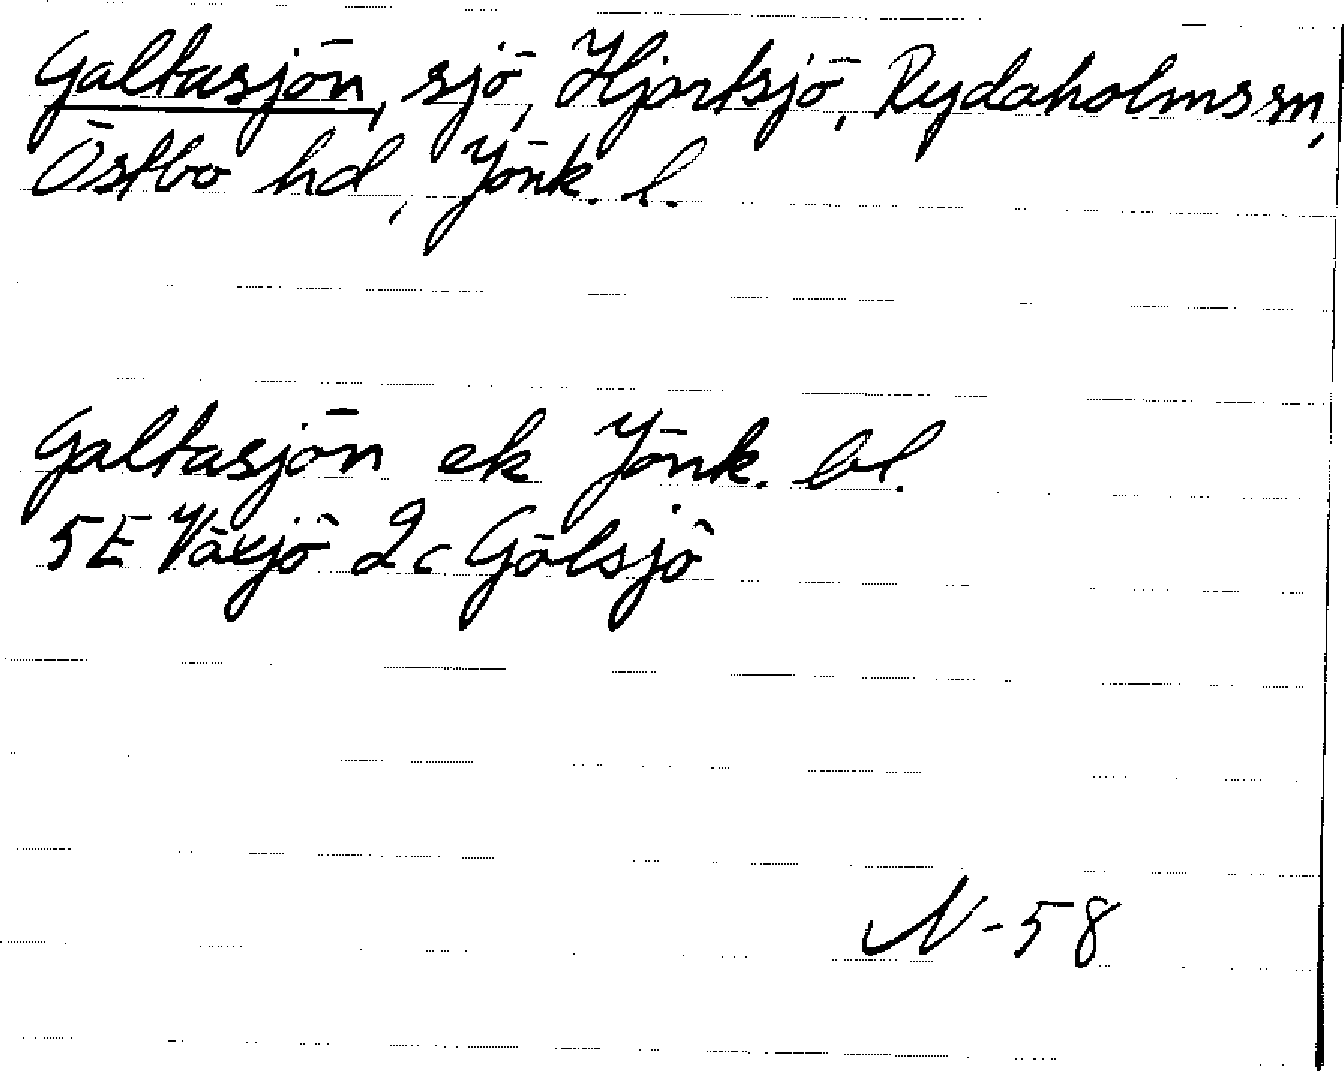 Galtasjön, sjö, Hjortsjö, Rydaholms sn,
Östbo hd, Jönk. l.
Galtasjön ek Jönk. bl.
5E Växjö 2c Gölsjö
N-58